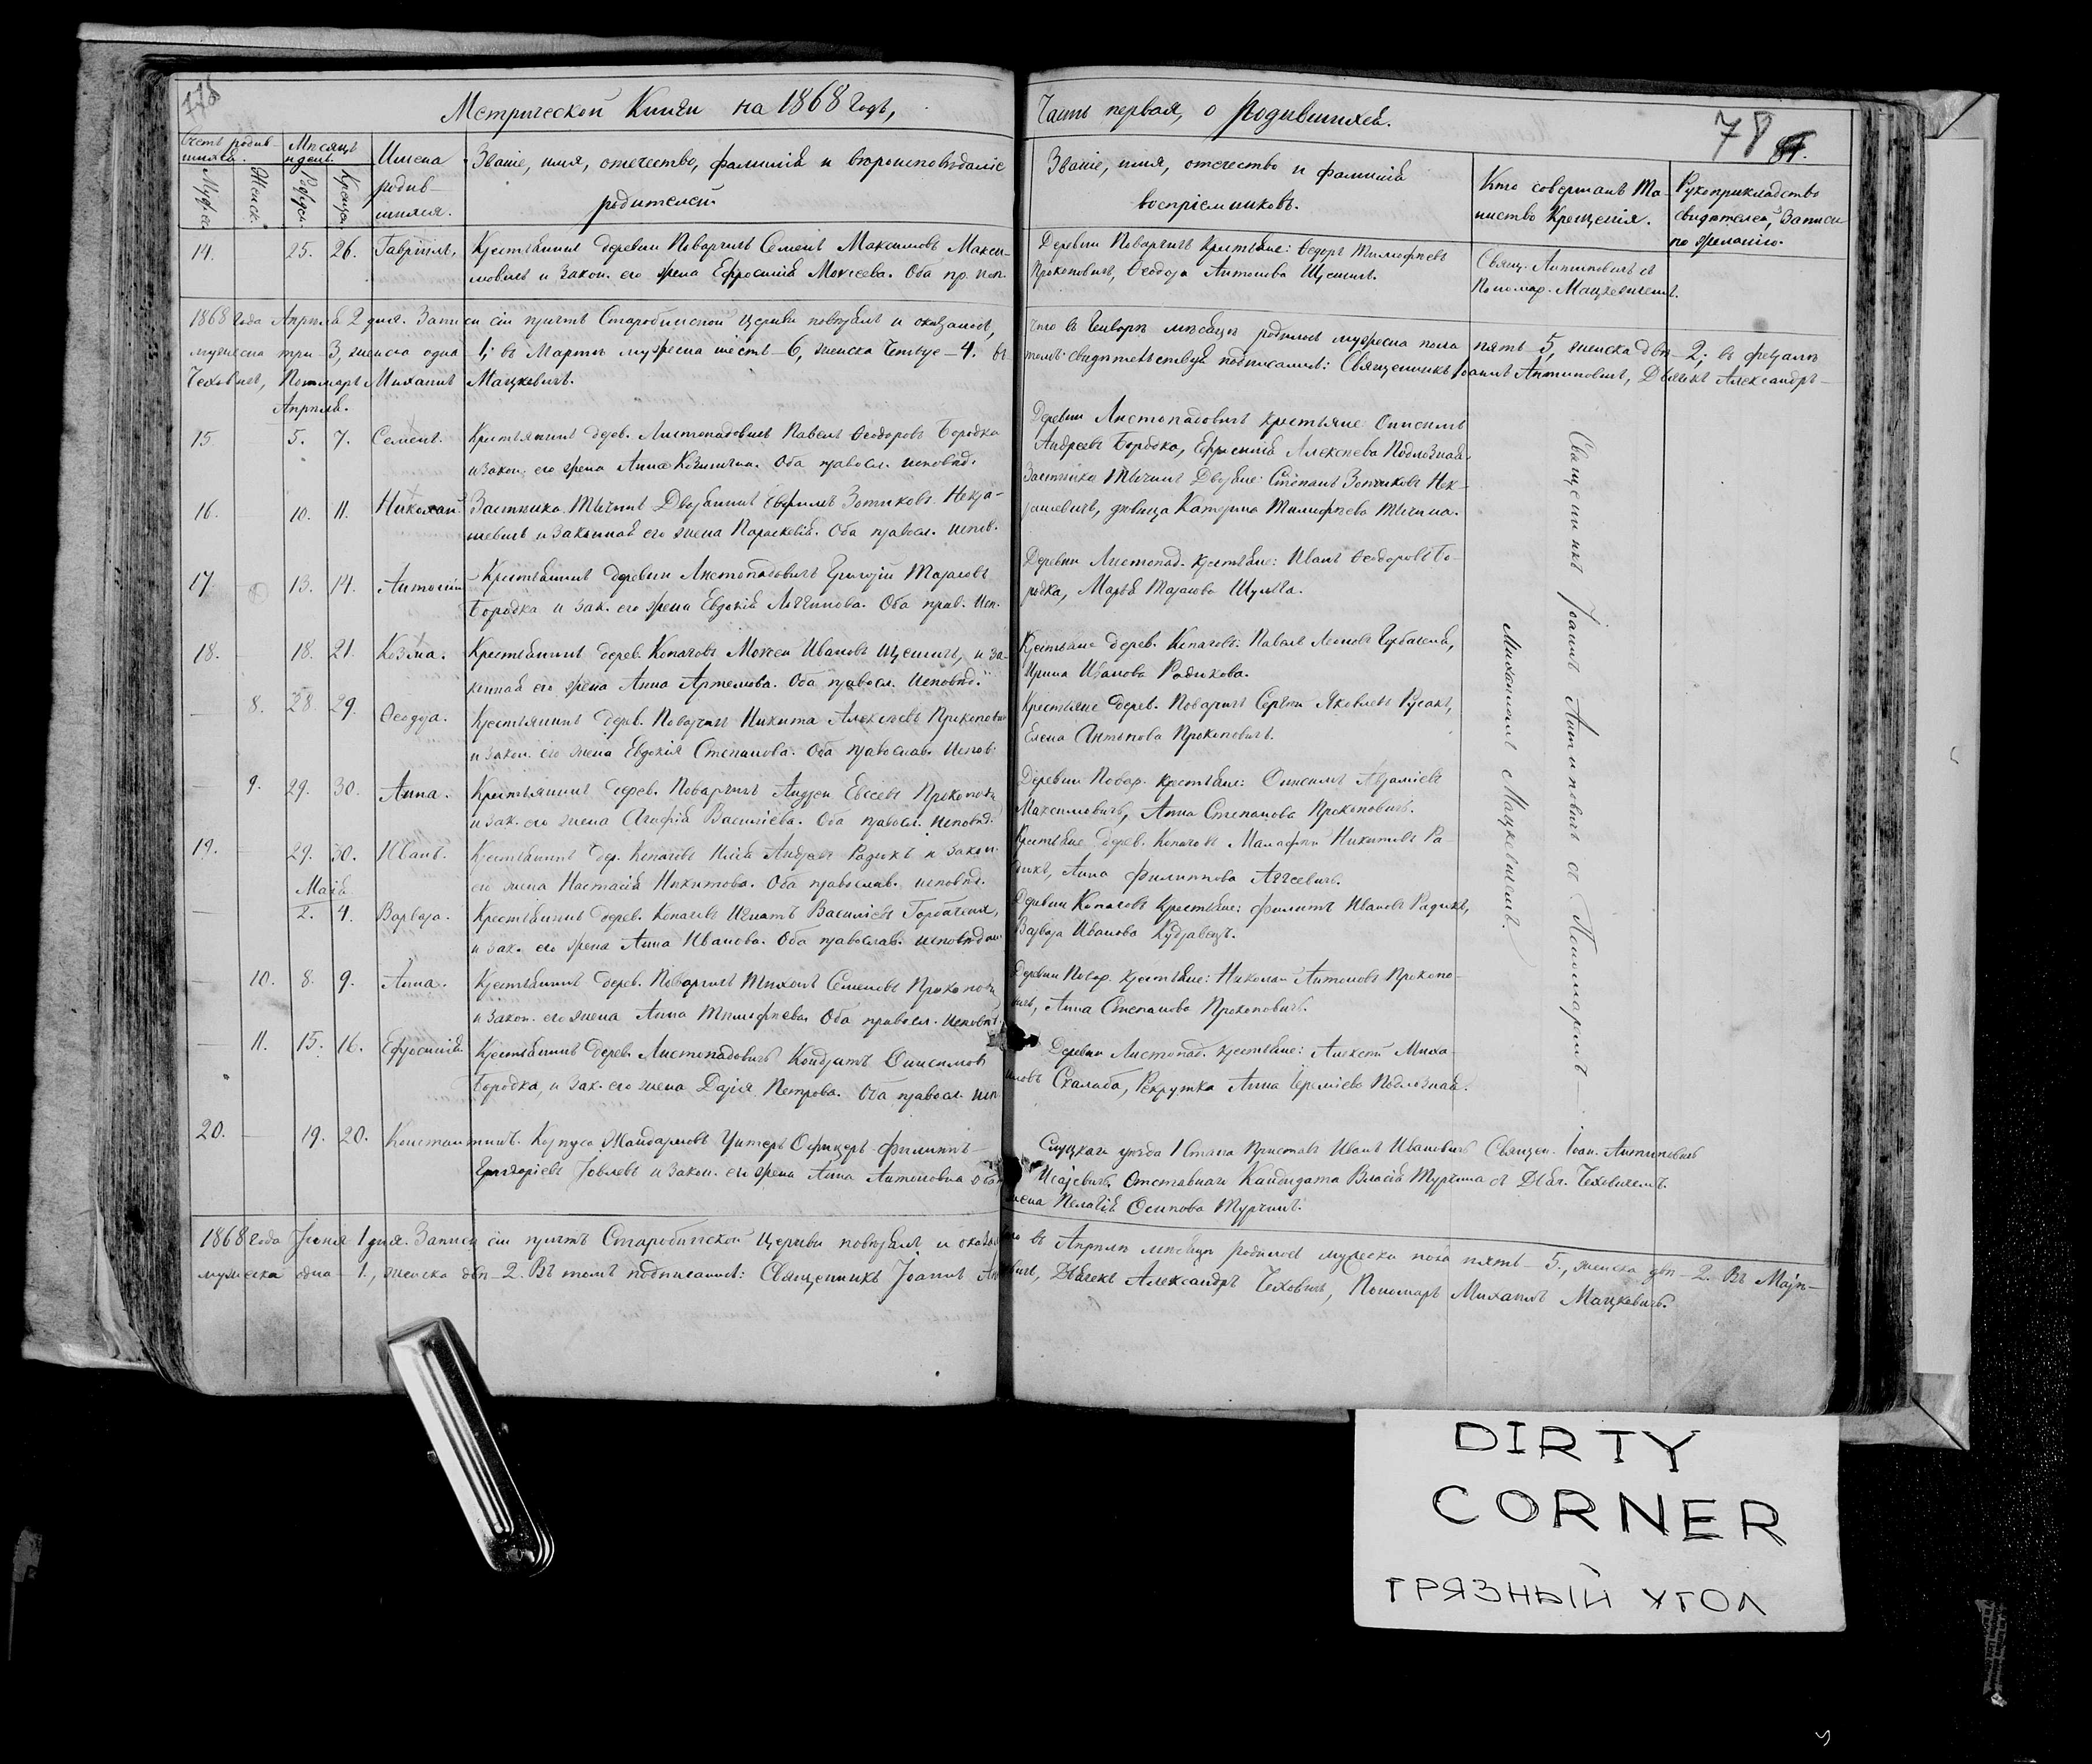 Метрической Книги на 1868 Годъ,
Часть первая, о Родившихся.
78
Счетъ родив-
шихся.
Мѣсяцъ
и день
Имена
родив-
шихся.
Званіе, имя, отечество, фамилія и вѣроисповѣданіе
родителей.
Званіе, имя, отечество и фамилія
воспріемниковъ.
Кто совершалъ Та-
инство Крещенія.
Рукоприкладство
свидѣтелей Записи
по желанію.
14. 25. 26. Гавріилъ.
Крестьянинъ деревни Поварчичъ Семенъ Максимовъ Макси-
мовичъ и Закон. его жена Ефросинія Моѵсеева. Оба пр. исп.
Деревни Поварчичъ Крестьяне: Ѳедоръ Тимоѳеевъ
Прокоповичъ, Ѳеодора Антонова Щемихъ.
Свящ. Антиповичъ съ
Пономар. Мацкевичемъ.
1868 Года Апрѣля 2 дня. Записи сіи причтъ Старобинской Церкви повѣрялъ и оказалось,
что въ Генварѣ мѣсяцѣ родилось мужеска пола пять 5, женска двѣ 2; въ Февралѣ
мужеска три 3, женска одна 1; въ Мартѣ мужеска шесть 6, женска Четыре 4. въ
томъ свидѣтельствуя подписались: Священникъ Іоаннъ Антиповичъ, Дьячекъ Александръ
Чеховичъ, Пономарь Михаилъ Мацкевичъ.
Апрѣля.
15. 5. 7. Семенъ.
Крестьянинъ дерев. Листопадовичъ Павелъ Ѳеодоровъ Бородка
и закон. его жена Анна Оба правосл. исповѣд.
Деревни Листопадовичъ крестьяне Онисимъ
Андреевъ Бородка, Ефросинія Алексѣева Подлозная.
16. 10. 11. Николай
Застѣнка Тычинъ Дворянинъ Евфимъ Зотиковъ Некра-
шевичъ и Законная его жена Параскевія. Оба правосл. испов.
Застѣнка Тычинъ Дворяне: Степанъ Зотиковъ Нек-
рашевичъ, дѣвица Катерина Тимоѳеева Тычина.
17. 13. 14. Антоній
Крестьянинъ деревни Листопадовичъ Григорій Тарасовъ
Бородка и зак. его жена Евдокія Логгинова. Оба прав. Исп.
Деревни Листопад. крестьяне: Иванъ Ѳеодоровъ Бо-
родка, Марья Тарасова Шульга.
18. 18. 21. Козма.
Крестьянинъ дерев. Копачовъ Моѵсей Ивановъ Щемихъ, и за-
конная его жена Анна Артемова. Оба правосл. исповѣд.
Крестьяне дерев. Копачовъ: Павелъ Леоновъ Горбаченя,
Ирина Иванова Радикова.
8. 28. 29. Ѳеодора.
Крестьянинъ дерев. Поварчичъ Никита Алексѣевъ Прокопович
и закон. его жена Евдокія Степанова. Оба православ. Испов.
Крестьяне дерев. Поварчичъ Сергѣй Яковлевъ Русакъ,
Елена Антонова Прокоповичъ.
9. 29. 30. Анна.
Крестьянинъ дерев. Поварчичъ Андрей Евсеевъ Прокопови
и зак. его жена Агафія Василіева. Оба правосл. исповѣд.
Деревни Повар. крестьяне: Онисимъ
Максимовичъ, Анна Степанова Прокоповичъ.
19. 29. 30. Иванъ.
Крестьянинъ дер. Копачовъ Илія Андреевъ Радюкъ и закон.
его жена Настасія Никитова. Оба православ. исповѣд.
Крестьяне дерев. Копачовъ Малафей Никитовъ Ра-
дикъ, Анна Филиппова
Маія
2. 4. Варвара.
Крестьянинъ дерев. Копачовъ Игнатъ Василіевъ Горбаченя,
и зак. его жена Анна Иванова. Оба православ. исповѣдан.
Деревни Копачовъ крестьяне: Филипъ Ивановъ Радикъ,
Варвара Иванова Кудравецъ.
10. 8. 9. Анна.
Крестьянинъ дерев. Поварчичъ Тихонъ Семеновъ Прокопови
и закон. его жена Анна Тимоѳеева. Оба правосл. исповѣд.
Деревни Повар. крестьяне: Николай Антоновъ Прокопо-
вичъ, Анна Степанова Прокоповичъ.
11. 15. 16. Ефросинія
Крестьянинъ дерев. Листопадовичъ Кондратъ Онисимовъ
Бородка, и зак. его жена Дарія Петрова. Оба правосл. исп.
Деревни Листопад. крестьяне: Алексѣй Миха-
иловъ Скалаба, Рекрутка Анна Іереміева Подлозная.
20. 19. 20. Константинъ.
Корпуса Жандармовъ Унтеръ Офицеръ Филиппъ
Григоріевъ Іовлевъ и закон. его жена Анна Антоновна оба
Слуцкаго уѣзда 1 Стана Приставъ Иванъ Ивановичъ
Отставнаго Кандидата Власія Турчина
жена Пелагія Осипова Турчинъ.
Священ. Іоан. Антиповичъ
съ Дьяч. Чеховичемъ.
Священникъ Іоаннъ Антиповичъ съ Пономаремъ
Михаиломъ Мацкевичемъ.
1868 Года Іюня 1 дня. Записи сіи причтъ Старобинской Церкви повѣрялъ и оказал
что въ Апрѣлѣ мѣсяцѣ родилось мужеска пола пять 5., женска двѣ 2. Въ Маѣ
мужеска одна 1., женска двѣ 2. Въ томъ подписались: Священникъ Іоаннъ Ан
вичъ, Дьячекъ Александръ Чеховичъ, Пономарь Михаилъ Мацкевичъ.
DIRTY
CORNER
ГРЯЗНЫЙ УГОЛ